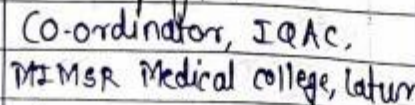 Co-ordinator, IQAC.
MIMSR Medical college, Latur